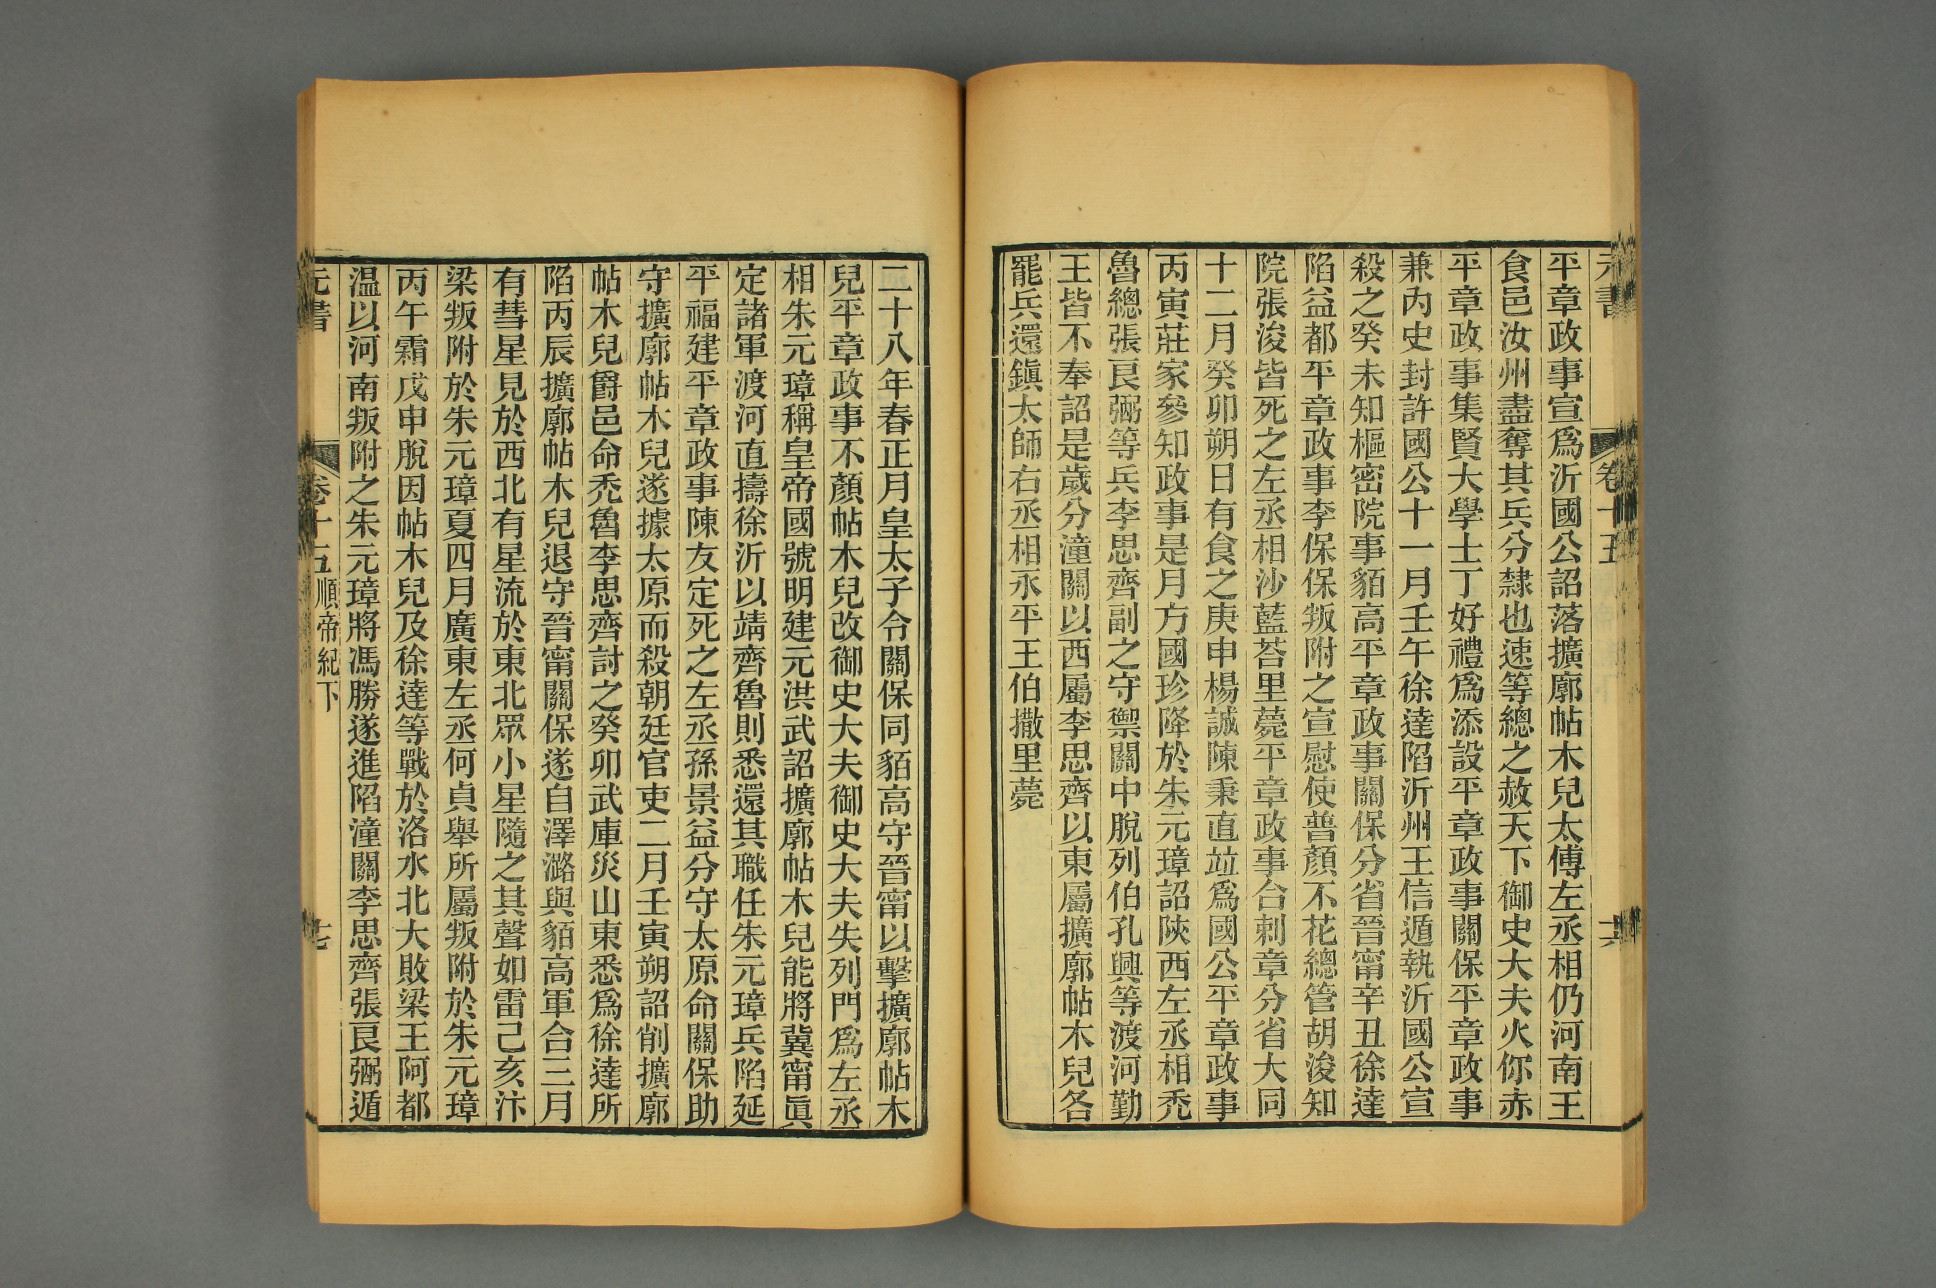 平章政事宣爲沂國公詔落擴廓帖木兒太傅左丞相仍河南王
食邑汝州盡奪其兵分隸也速等總之赦天下御史大夫火你赤
平章政事集賢大學士丁好禮爲添設平章政事關保平章政事
兼內史封許國公十一月壬午徐達陷沂州王信遁執沂國公宣
殺之癸未知樞密院事貊高平章政事關保分省晉甯辛丑徐達
陷益都平章政事李保保叛附之宣慰使普顏不花總管胡浚知
院張浚皆死之左丞相沙藍荅里薨平章政事合剌章分省大同
十二月癸卯朔日有食之庚申楊誠陳秉直竝爲國公平章政事
丙寅莊家參知政事是月方國珍降於朱元璋詔陝西左丞相禿
魯總張良弼等兵李思齊副之守禦關中脫列伯孔興等渡河勤
王皆不奉詔是歲分潼關以西屬李思齊以東屬擴廓帖木兒各
罷兵還鎮太師右丞相永平王伯撒里薨
二十八年春正月皇太子令關保同貊高守晉甯以擊擴廓帖木
兒平章政事不顏帖木兒改御史大夫御史大夫失列門爲左丞
相朱元璋稱皇帝國號明建元洪武詔擴廓帖木兒能將冀甯眞
定諸軍渡河直擣徐沂以靖齊魯則悉還其職任朱元璋兵陷延
平福建平章政事陳友定死之左丞孫景益分守太原命關保助
守擴廓帖木兒遂據太原而殺朝廷官吏二月壬寅朔詔削擴廓
帖木兒爵邑命禿魯李思齊討之癸卯武庫災山東悉爲徐達所
陷丙辰擴廓帖木兒退守晉甯關保遂自澤潞與貊高軍合三月
有彗星見於西北有星流於東北眾小星隨之其聲如雷己亥汴
梁叛附於朱元璋夏四月廣東左丞何貞舉所屬叛附於朱元璋
丙午霜戊申脫因帖木兒及徐達等戰於洛水北大敗梁王阿都
溫以河南叛附之朱元璋將馮勝遂進陷潼關李思齊張良弼遁
元書 卷十五 順帝紀下 七